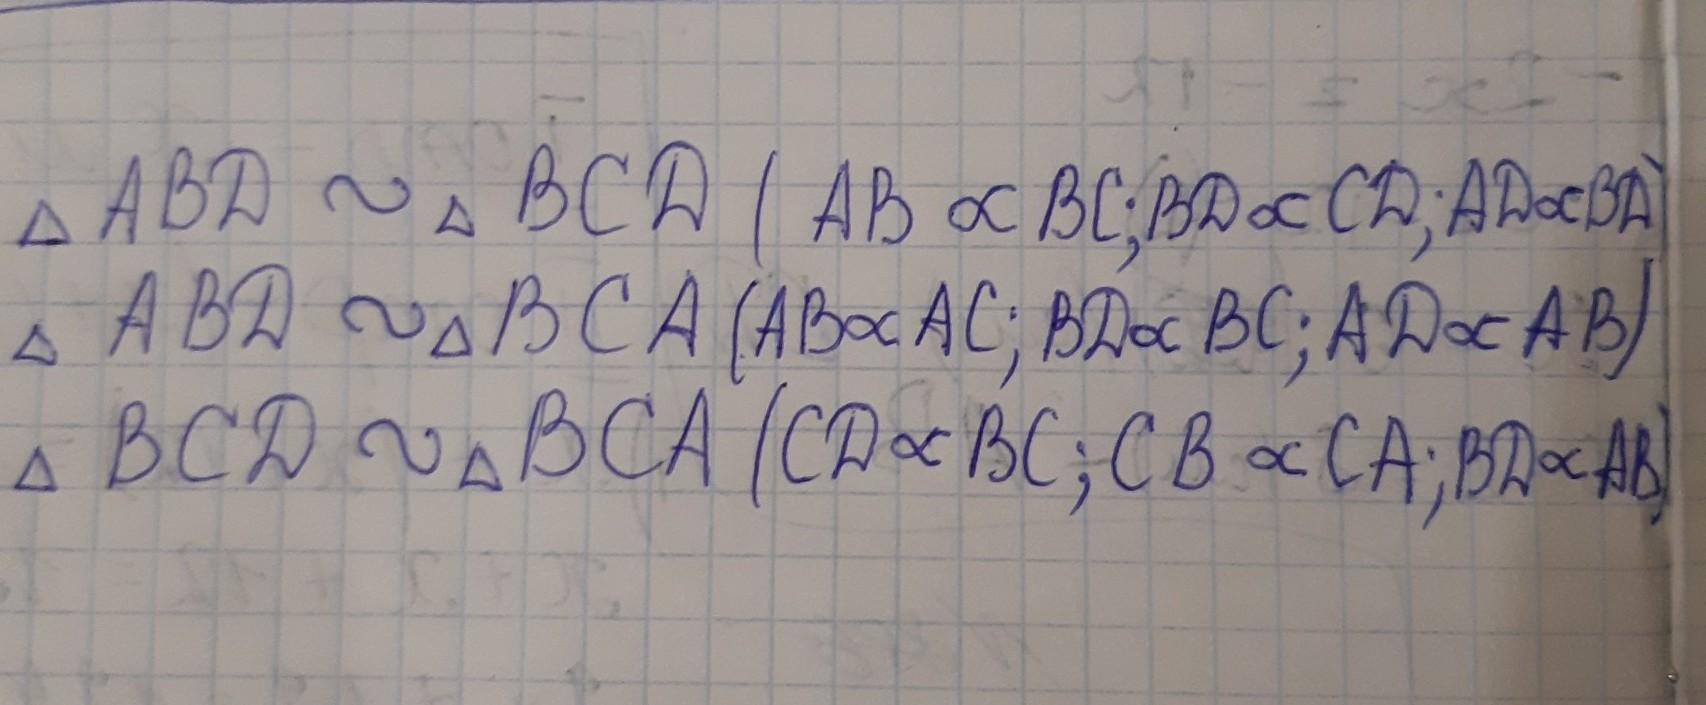 △ ABD ~ △ BCD ( AB ∝ BC; BD ∝ CD; AD ∝ BD)
△ ABD ~ △ BCA (AB ∝ AC; BD ∝ BC; AD ∝ AB)
△ BCD ~ △ BCA (CD ∝ BC; CB ∝ CA; BD ∝ AB)